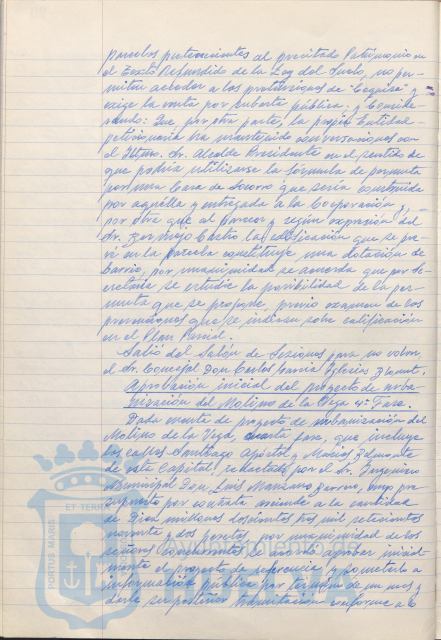 parcelas pertenecientes al precitado Patrimonio en
el Texto Refundido de la Ley del Suelo, no per-
miten acceder a las pretensiones de Cequisa y
exige la venta por subasta pública. y Conside-
rando: Que por otra parte, la propia Entidad
peticionaria ha mantenido conversaciones con
el Iltmo. Sr. Alcalde Presidente en el sentido de
que podría utilizarse la fórmula de permuta
por una Casa de Socorro que sería construida
por aquélla y entregada a la Corporación y,
por otra que al parecer y según expresión del
Sr. Bermejo Castro la edificación que se pre-
vé en la parcela constituye una dotación de
barrio, por unanimidad se acuerda que por Se-
cretaría se estudie la posibilidad de la per-
muta que se propone, previo examen de los
pronunciamientos que se indican sobre calificación
en el Plan Parcial.
Salió del Salón de Sesiones para no volver,
el Sr. Concejal Don Carlos García Iglesias Clement.
Aprobación inicial del proyecto de urba-
nización del Molino de la Vega 4ª Fase.
Dada cuenta de proyecto de urbanización del
Molino de la Vega, cuarta fase, que incluye
las calles Santiago Apóstol y Macías Belmonte
de esta Capital, redactado por el Sr. Ingeniero
Municipal Don Luis Manzano, cuyo pre-
supuesto por contrata asciende a la cantidad
de Diez millones doscientas dos mil setecientas
noventa y dos pesetas, por unanimidad de los
señores concurrentes se acordó aprobar inicial-
mente el proyecto de referencia y someterlo a
información pública por término de un mes y
darle su posterior tramitación conforme a lo
PORTUS MARIS
ET TERRAE